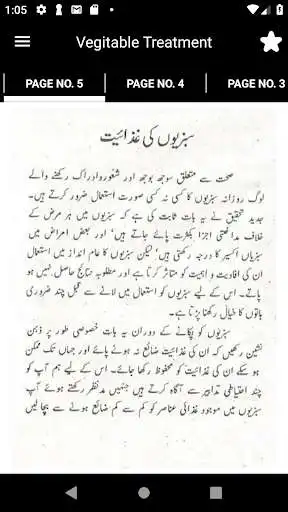 1:05
Vegitable Treatment
PAGE NO. 5
PAGE NO. 4
PAGE NO. 3
سبزیوں کی غذائیت
صحت سے متعلق سوجھ بوجھ اور شعور و ادراک رکھنے والے
لوگ روزانہ سبزیوں کا کسی نہ کسی صورت استعمال ضرور کرتے ہیں۔
جدید تحقیق نے یہ بات ثابت کی ہے کہ سبزیوں میں ہر مرض کے
خلاف مدافعتی اجزا بکثرت پائے جاتے ہیں' اور بعض امراض میں
سبزیاں اکسیر کا درجہ رکھتی ہیں' لیکن سبزیوں کا عام انداز میں استعمال
ان کی افادیت و اہمیت کو متاثر کرتا ہے اور مطلوبہ نتائج حاصل نہیں ہو
پاتے۔ اس کے لیے سبزیوں کو استعمال میں لانے سے قبل چند ضروری
باتوں کا خیال رکھنا پڑتا ہے۔
سبزیوں کو پکانے کے دوران یہ بات خصوصی طور پر ذہن
نشین رکھیں کہ ان کی غذائیت ضائع نہ ہونے پائے اور جہاں تک ممکن
ہو سکے ان کی غذائیت کو محفوظ رکھا جائے۔ اس کے لیے ہم آپ کو
چند احتیاطی تدابیر سے آگاہ کرتے ہیں جنہیں مدنظر رکھتے ہوئے آپ
سبزیوں میں موجود غذائی عناصر کو کم سے کم ضائع ہونے سے بچا لیں